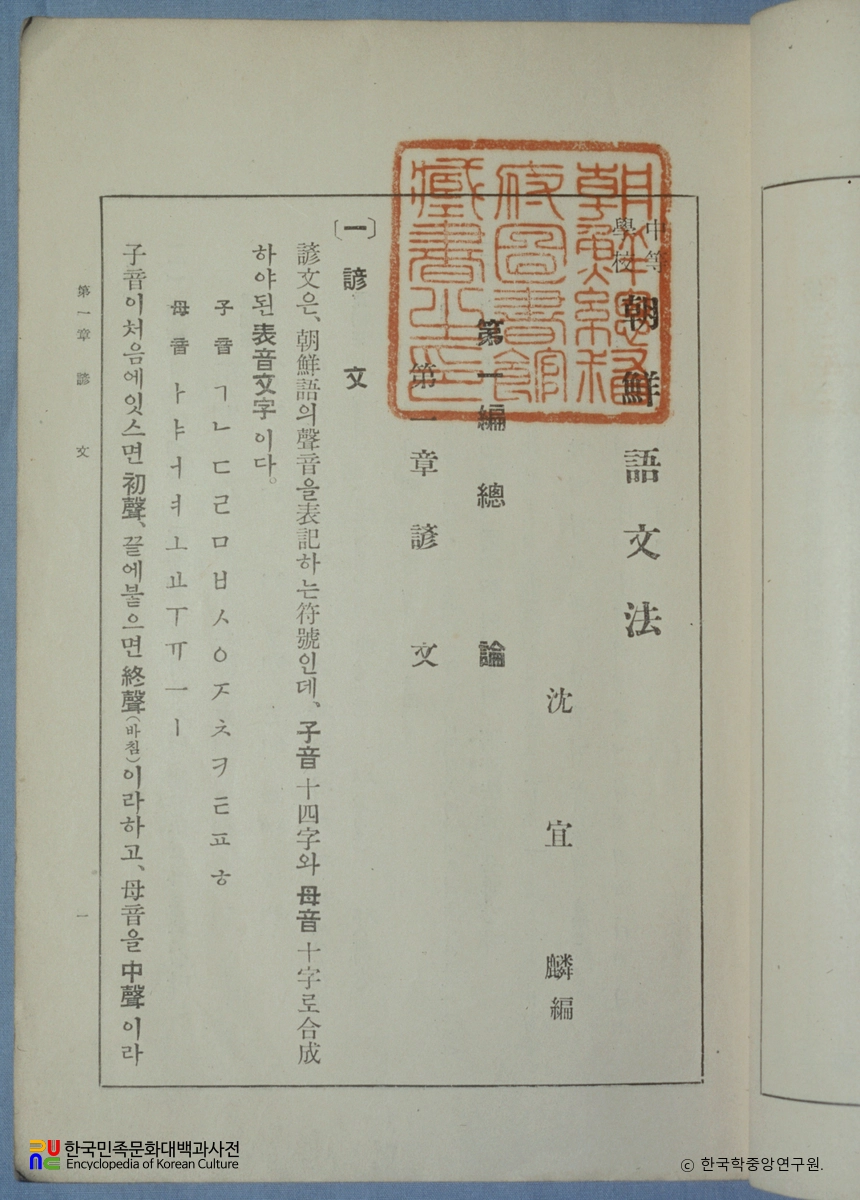 中等
學校
朝鮮語文法
沈宜麟編
第一編 總論
第一章 諺文
〔一〕 諺文
諺文은、朝鮮語의聲音을表記하는符號인데、子音十四字와母音十字로合成
하야된表音文字이다。
子音 ㄱㄴㄷㄹㅁㅂㅅㅇㅈㅊㅋㅌㅍㅎ
母音 ㅏㅑㅓㅕㅗㅛㅜㅠㅡㅣ
子音이처음에잇스면初聲、끝에붙으면終聲(바침)이라하고、母音을中聲이라
第一章 諺文
一
朝鮮總督
府圖書館
藏書之印
한국민족문화대백과사전
Encyclopedia of Korean Culture
ⓒ 한국학중앙연구원.